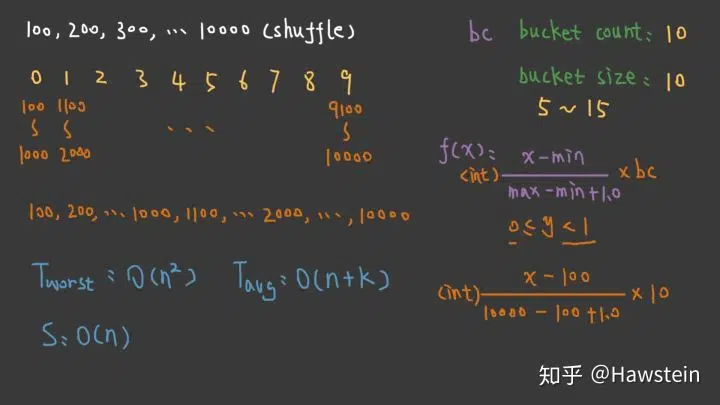 100, 200, 300, ... 10000 (shuffle)
0 1 2 3 4 5 6 7 8 9
100 1100 9100
∫ ∫ ... ∫
1000 2000 10000
100, 200, ... 1000, 1100, ... 2000, ..., 10000
Tworst: O(n²) Tavg: O(n+k)
S: O(n)
bc bucket count: 10
bucket size: 10
5 ~ 15
f(x): (int) x-min / max-min+1.0 × bc
0 ≤ y < 1
(int) x-100 / 10000-100+1.0 × 10
知乎 @Hawstein